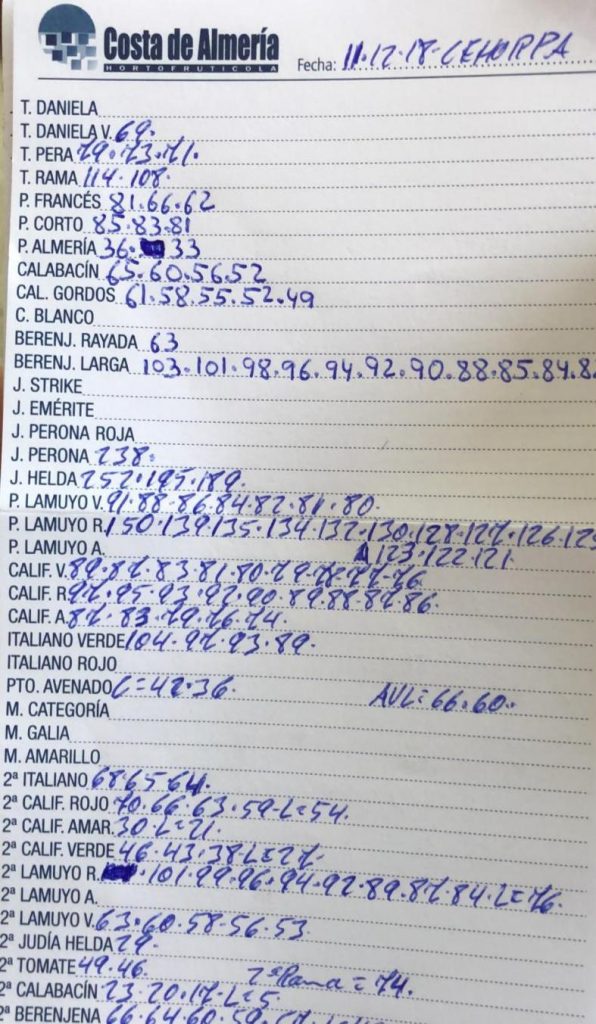 Costa de Almería
HORTOFRUTICOLA
Fecha: 11.12.18-CEHORPA
T. DANIELA
T. DANIELA V. 69.
T. PERA 79.73.71.
T. RAMA 114.108.
P. FRANCÉS 81.66.62
P. CORTO 85.83.81
P. ALMERÍA 36. 33
CALABACÍN 65.60.56.52
CAL. GORDOS 61.58.55.52.49
C. BLANCO
BERENJ. RAYADA 63
BERENJ. LARGA 103.101.98.96.94.92.90.88.85.84.82
J. STRIKE
J. EMÉRITE
J. PERONA ROJA
J. PERONA 238.
J. HELDA 252.195.189.
P. LAMUYO V. 91.88.86.84.82.81.80.
P. LAMUYO R. 150.139.135.134.132.130.128.127.126.125
P. LAMUYO A. 123.122.121
CALIF. V. 89.87.83.81.80.79.78.77.76
CALIF. R. 97.95.93.92.90.89.88.87.86.
CALIF. A. 87.83.79.76.74.
ITALIANO VERDE 104.97.93.89.
ITALIANO ROJO
PTO. AVENADO L=42.36. AVL=66.60.
M. CATEGORÍA
M. GALIA
M. AMARILLO
2ª ITALIANO 68.65.64.
2ª CALIF. ROJO 70.66.63.59-L=54.
2ª CALIF. AMAR. 30-L=21.
2ª CALIF. VERDE 46.43.38 L=27.
2ª LAMUYO R. .101.99.96.94.92.89.87.84.L=76.
2ª LAMUYO A.
2ª LAMUYO V. 63.60.58.56.53
2ª JUDÍA HELDA 79.
2ª TOMATE 49.46. 2ª Rama = 74.
2ª CALABACÍN 23.20.17-L=5
2ª BERENJENA 66.64.60.59.57